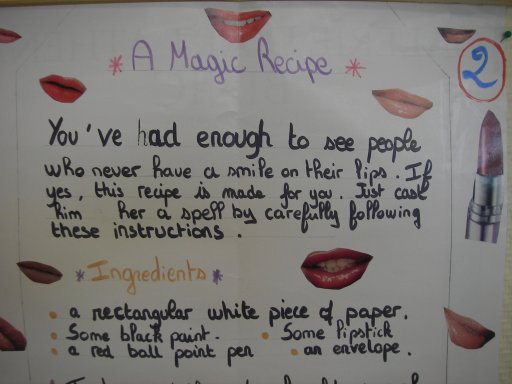 * A Magic Recipe *
2
You've had enough to see people
who never have a smile on their lips. If
yes, this recipe is made for you. Just cast
him her a spell by carefully following
these instructions.
* Ingredients *
• a rectangular white piece of paper.
• Some black paint. • Some lipstick
• a red ball point pen • an envelope.